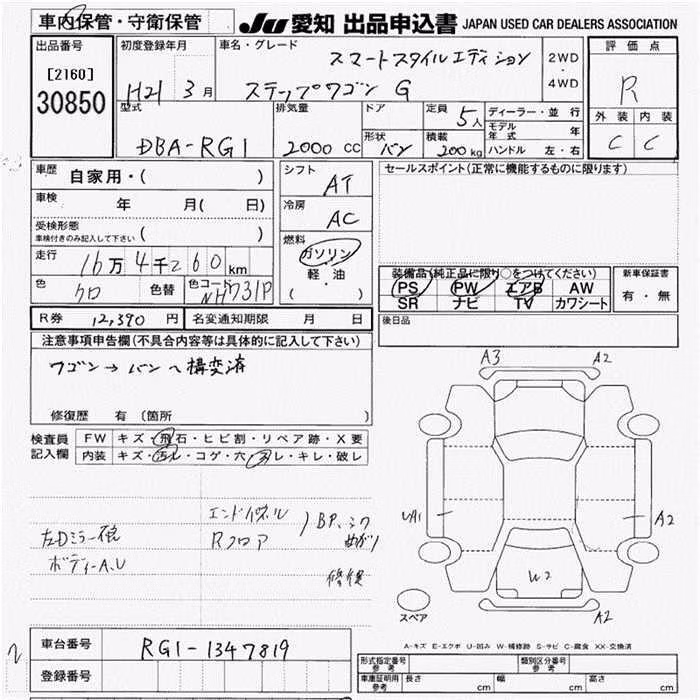 車内保管・守衛保管
JU 愛知 出品申込書 JAPAN USED CAR DEALERS ASSOCIATION
出品番号
[2160]
30850
初度登録年月
H21 3月
車名・グレード
スマートスタイルエディション
ステップワゴン G
2WD
・
4WD
評価点
R
外装 内装
C C
型式
DBA-RG1
排気量
2000 CC
ドア
形状
バン
定員
5人
積載
200kg
ディーラー・並行
モデル年式 年
ハンドル 左・右
車歴
自家用・( )
車検
年 月( 日)
受検形態
車検付きのみ記入して下さい ( )
走行
16万4千260km
色
クロ
色替
色コード
NH731P
シフト
AT
冷房
AC
燃料
ガソリン
・
軽・油
( )
セールスポイント(正常に機能するものに限ります)
装備品(純正品に限り○をつけてください)
PS PW エアB AW
SR ナビ TV カワシート
新車保証書
有・無
後日品
R券 12,390円
名変通知期限 月 日
注意事項申告欄(不具合内容等は具体的に記入して下さい)
ワゴン→バンへ構変済
修復歴 有〔箇所 〕
検査員
記入欄
FW キズ・飛石・ヒビ割・リペア跡・X要
内装 キズ・汚レ・コゲ・穴・スレ・キレ・破レ
左Dミラー
ボディーA,U
エンドパネル
Rフロア
BP、
修復
A3 A2
UA1 A2
W2
A2
スペア
A-キズ E-エクボ U-凹み W-補修跡 S-サビ C-腐食 XX-交換済
2
車台番号
RG1-1347819
登録番号
形式指定番号
参考
類別区分番号
参考
車庫証明用
参考
長さ cm 幅 cm 高さ cm